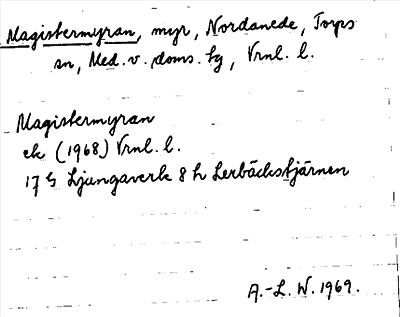 Magistermyran, myr, Nordanede, Torps
sn, Med. v. doms. tg, Vrnl. l.
Magistermyran
ek (1968) Vrnl. l.
17 G Ljungaverk 8 h Lerbäckstjärnen
A.-L. W. 1969.